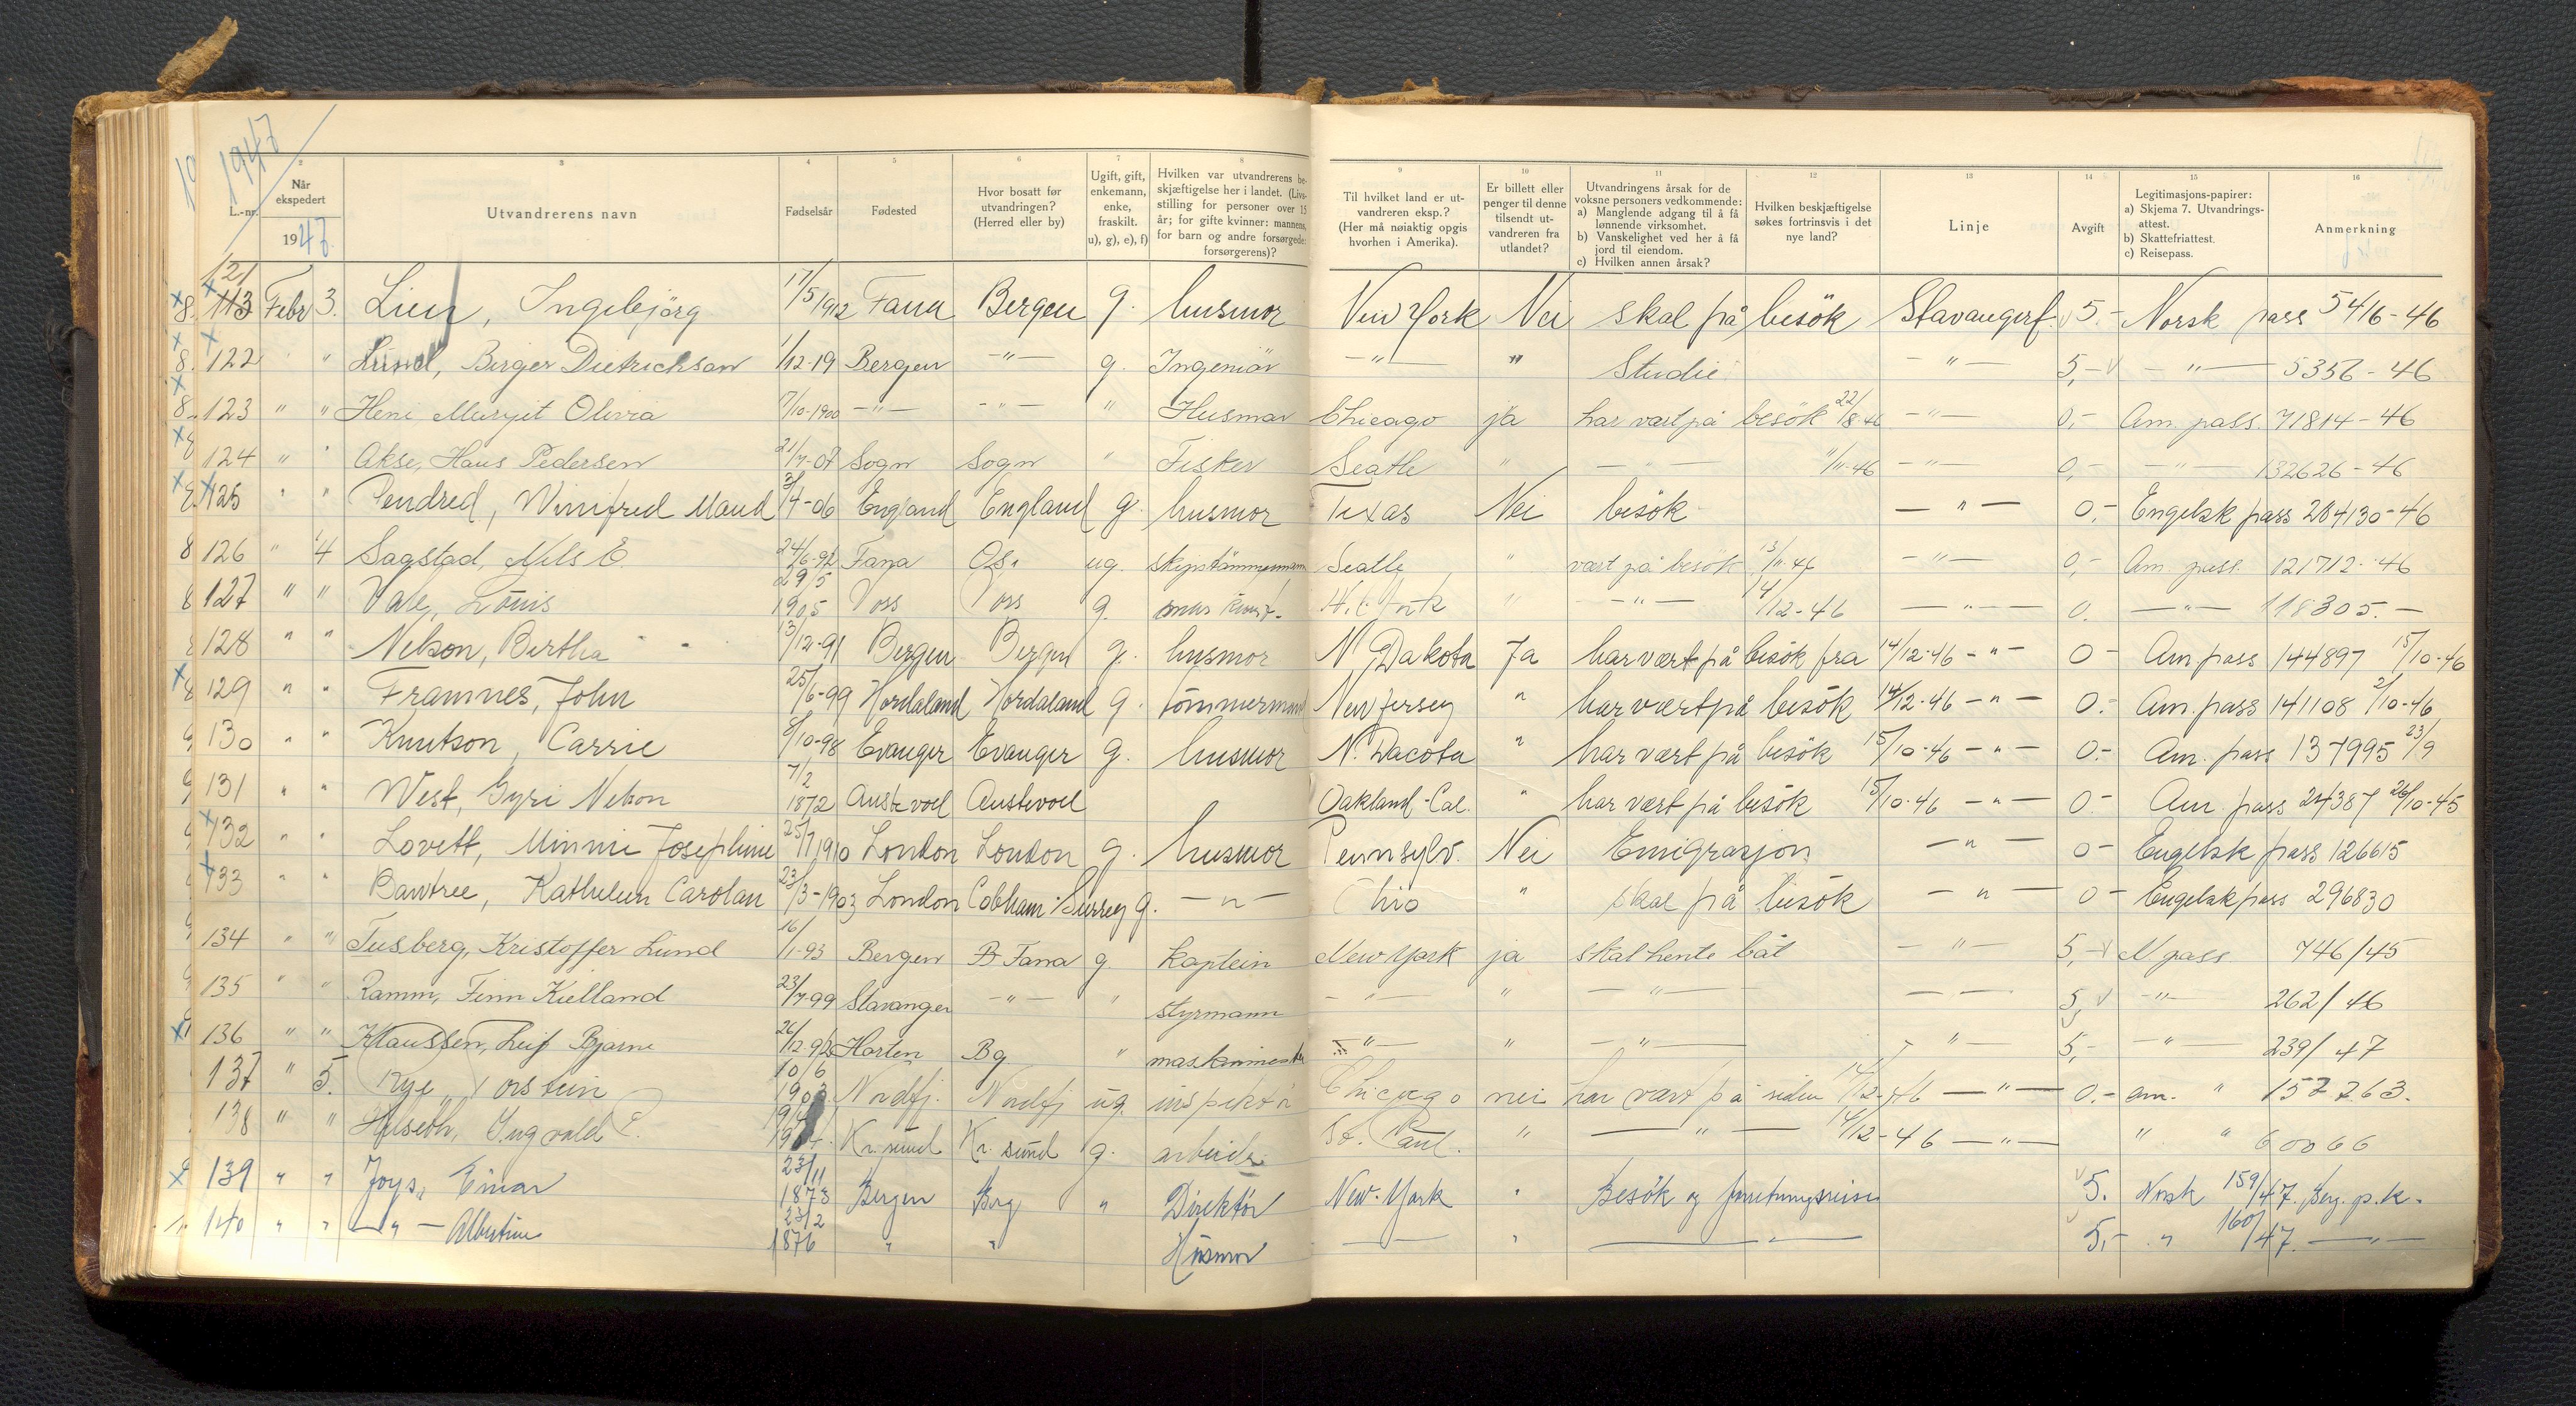 1947
L.-nr.
2 Når ekspedert 1947.
3 Utvandrerens navn
4 Fødselsår
5 Fødested
6 Hvor bosatt før utvandringen? (Herred eller by)
7 Ugift, gift, enkemann, enke, fraskilt. u), g), e), f)
8 Hvilken var utvandrerens beskjæftigelse her i landet. (Livsstilling for personer over 15 år; for gifte kvinner: mannens, for barn og andre forsørgede: forsørgerens)?
9 Til hvilket land er utvandreren eksp.? (Her må nøiaktig opgis hvorhen i Amerika).
10 Er billett eller penger til denne tilsendt utvandreren fra utlandet?
11 Utvandringens årsak for de voksne personers vedkommende: a) Manglende adgang til å få lønnende virksomhet. b) Vanskelighet ved her å få jord til eiendom. c) Hvilken annen årsak?
12 Hvilken beskjæftigelse søkes fortrinsvis i det nye land?
13 Linje
14 Avgift
15 Legitimasjons-papirer: a) Skjema 7. Utvandringsattest. b) Skattefriattest. c) Reisepass.
16 Anmerkning
121 113 Febr 3. Lien, Ingebjörg 17/5 1912 Fana Bergen g. husmor New York Nei skal på besök Stavangerf. 5.- Norsk pass 5416-46
122 " Lund, Birger Dietrichson 1/12-19 Bergen -"- g. Ingeniör -"- " Studie -"- 5,- -"- 5356-46
123 " " Heni Margit Olivia 7/10-1900 -"- -"- " Husmor Chicago ja har vært på besök 22/8-46 -"- 0,- Am. pass. 71814-46
124 " " Akse, Hans Pedersen 21/7-07 Sogn Sogn " Fisker Seatle " -"- 11/11-46 -"- 0,- -"- 132626-46
125 " " Pendred, Winifred Maud 3/4-06 England England g. husmor Texas Nei besök -"- 0.- Engelsk pass 284130-46
126 " 4 Sagstad, Nils E. 24/6-92 Fana Os. ug. skipstömmermann Seatle " vært på besök 13/11-46 -"- 0,- Am. pass. 121712-46
127 " " Vale, Louis 29/5 1905 Voss Voss g. " -"- 14/12-46 -"- 0. -"- 118305.-
128 " " Nelson, Bertha 13/12-91 Bergen Bergen g. husmor N. Dakota Ja har vært på besök fra 14/12-46 -"- 0- Am pass 144897 15/10-46
129 " " Framnes, John 25/6-99 Hordaland Hordaland g. tömmermand New Jersey " har vært på besök 14/12-46 -"- 0.- Am. pass 141108 2/10-46
130 " " Knutson, Carrie 8/10-98 Evanger Evanger g. husmor N. Dacota " har vært på besök 15/10-46 -"- 0.- Am. pass 137995 23/9
131 " " West, Gyri Nelson 7/2 1872 Austevoll Austevoll Oakland-Cal. " har vært på besök 15/10-46 -"- 0- Am. pass 24387 26/10-45
132 " " Lovett, Minnie Josephine 25/7 1910 London London g. husmor Pennsylv. Nei Emigrasjon -"- 0- Engelsk pass 126615
133 " " Bawtree, Kathleen Carolan 23/3-1903 London Cobham-Surrey g. -"- Ohio " skal på besök -"- 0- Engelsk pass 296830
134 " " Tusberg, Kristoffer Lund 16/1-93 Bergen Fana g. Kaptein New York ja skal hente båt -"- 5,- N pass. 746/45
135 " " Ramm, Finn Kielland 23/7-99 Stavanger -"- " styrmann -"- " -"- -- 5, -"- 262/46
136 " " Klaussen, Leif Bjarne 26/12-92 Horten Bg. " maskinmester -"- " -"- -"- 5,- -"- 239/47
137 " 5. Rye, Torstein 10/6 1903 Nordfj. Nordfj. ug. inspektör Chicago nei har vært på siden 14/12-46 -"- 0.- am. " 157263.
138 " " Huseth, Ingvald P. Kr. sund Kr. sund g. arbeider St. Paul. " -"- 14/12-46 -"- " " 60066
139 " " Joys, Einar 23/11 1873 Bergen Berg " Direktör New-York " Besök og forretningsreise 5. Norsk 159/47. Berg. p.k.
140 " " -"- Albertine 23/2 1876 " " Husmor -- " -"- 5,- " 160/47. -"-